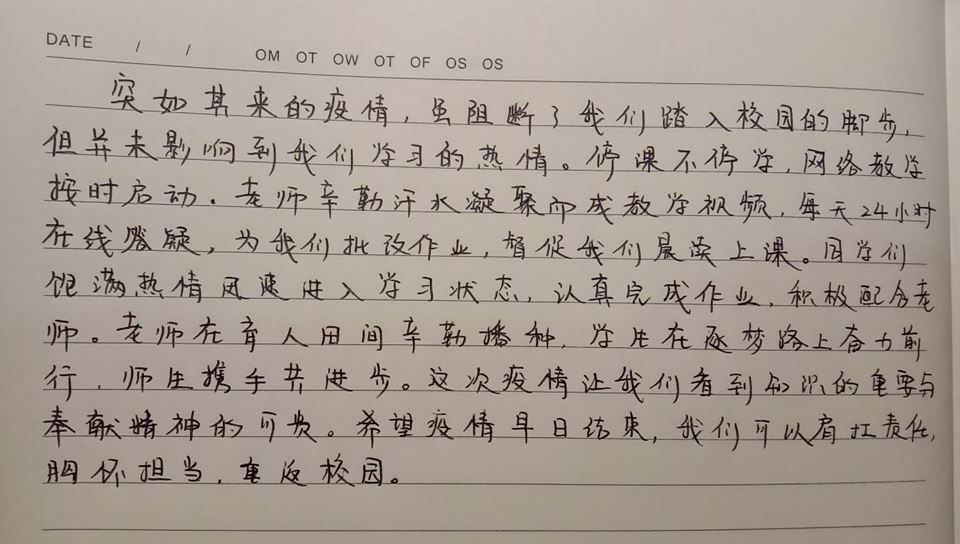 DATE / / OM OT OW OT OF OS OS
突如其来的疫情，虽阻断了我们踏入校园的脚步，
但并未影响到我们学习的热情。停课不停学，网络教学
按时启动。老师辛勤汗水凝聚而成教学视频，每天24小时
在线答疑，为我们批改作业，督促我们晨读上课。同学们
饱满热情迅速进入学习状态，认真完成作业，积极配合老
师。老师在育人田间辛勤播种，学生在逐梦路上奋力前
行，师生携手共进步。这次疫情让我们看到知识的重要与
奉献精神的可贵。希望疫情早日结束，我们可以肩扛责任，
胸怀担当，重返校园。